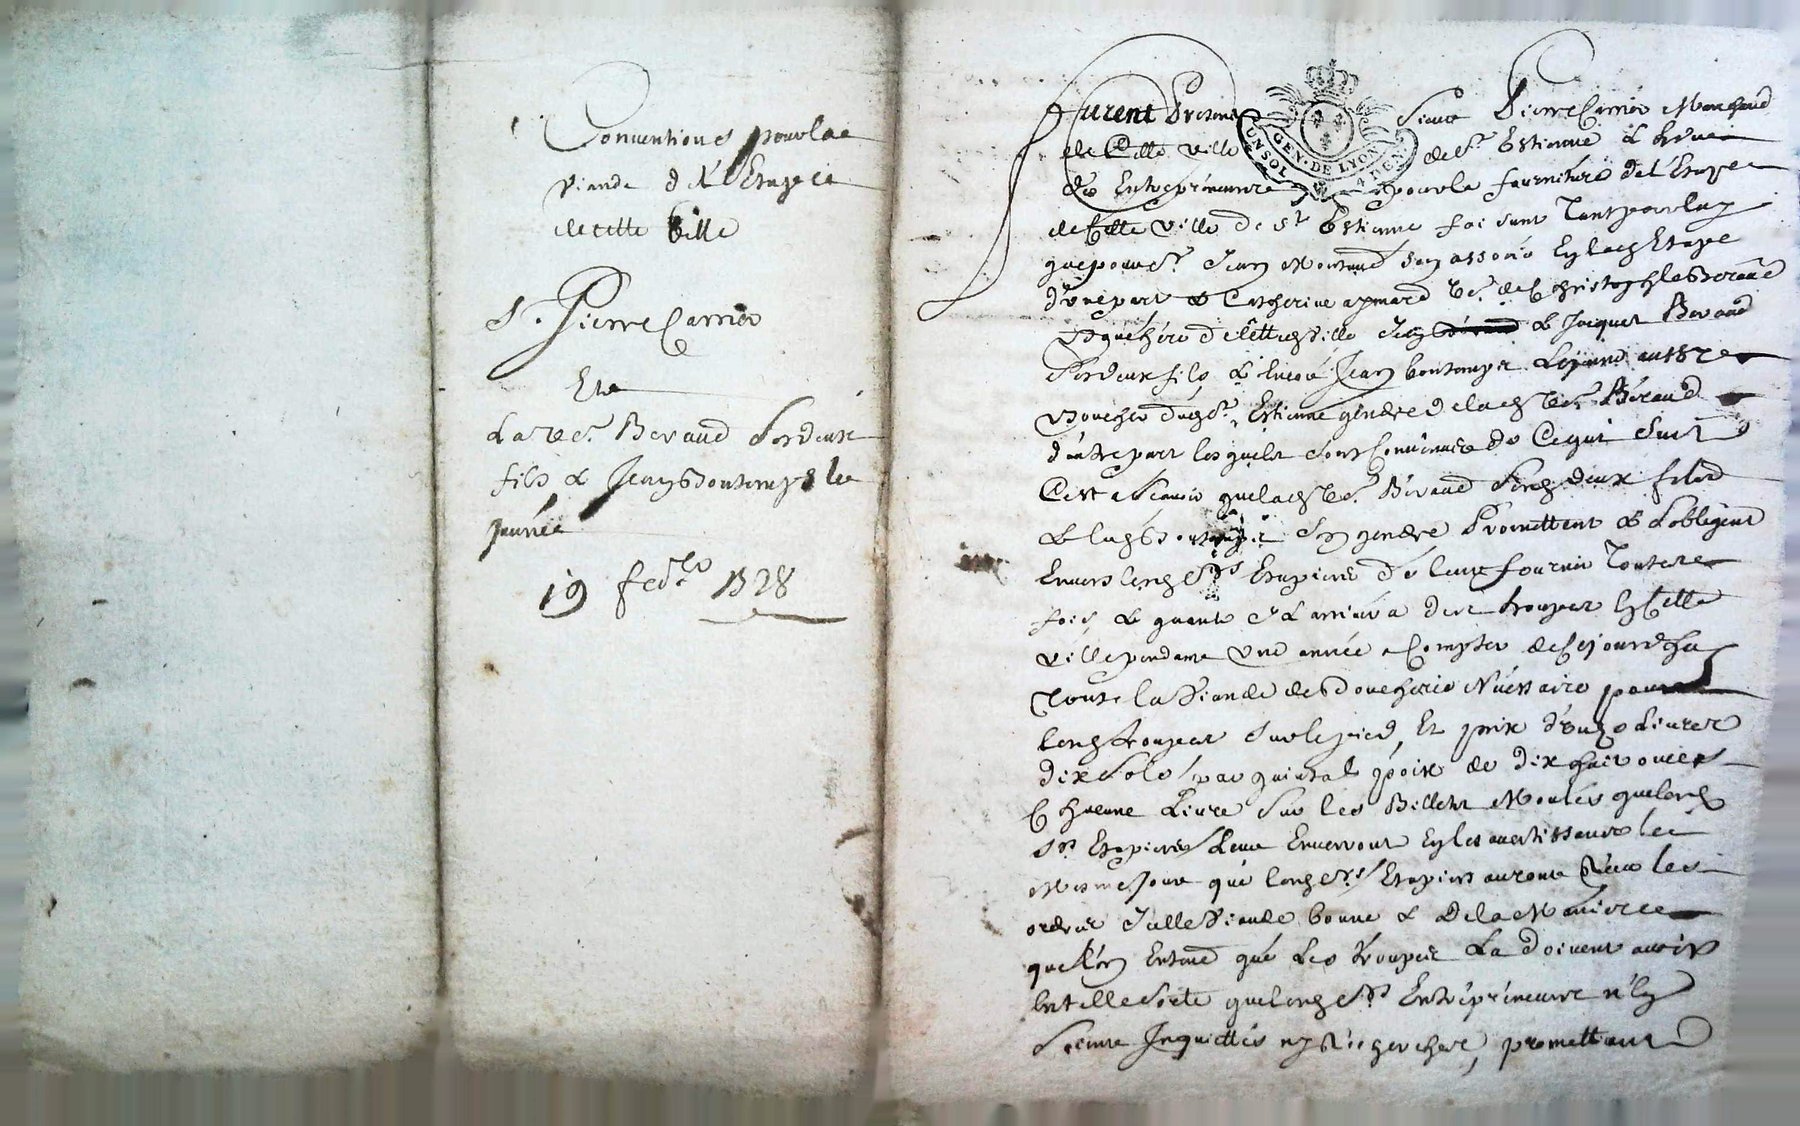 Conventions pour la
viande de l'Etape
de cette ville
Sr. Pierre Carrier
Et
La ve. Beraud ses deux
fils & Jean Bontemps le
jeune
19 1728
furent presents Sieur Pierre Carrier Marchand
de Cette ville de St Estienne &
des Entrepreneurs pour la fourniture de l'Etape
de Cette ville de St Estienne faisant tant pour luy
que pour Sr. Jean son associé En lad Etape
d'une part & Catherine aymard ve. de Christophle Beraud
de Cette ville Jean & Jacques Beraud
ses deux fils & Jean bontemps aussy
Boucher dud St. Estienne gendre de lad ve. Béraud
d'autre part lesquels sont Convenus de Ce qui suit
C'est a sçavoir que lad ve. Béraud sesd deux fils
& led Bontemps son gendre Promettent & s'obligent
Envers lesd Srs Etapiers de leur fournir Toutes
fois & quante des troupes En Cette
ville pendant une année a Compter de Cejourdhuy
Toute la viande de Boucherie Nécessaire pour
lesd troupes sur le pied Et prix d'onze Livres
dix sols par quintal poix de dix huit onces
Chacune Livre sur les Billets que lesd
Srs Etapiers Leur Envoyeront En les avertissant le
Mesme Jour que lesd Srs Etapiers auront Reçu les
ordres Icelle viande bonne & De la Maniere
que l'on Entend que Les troupes La doivent avoir
En telle sorte que lesd Srs Entrepreneurs n'En
soient Inquiettés ny Recherchés, promettant